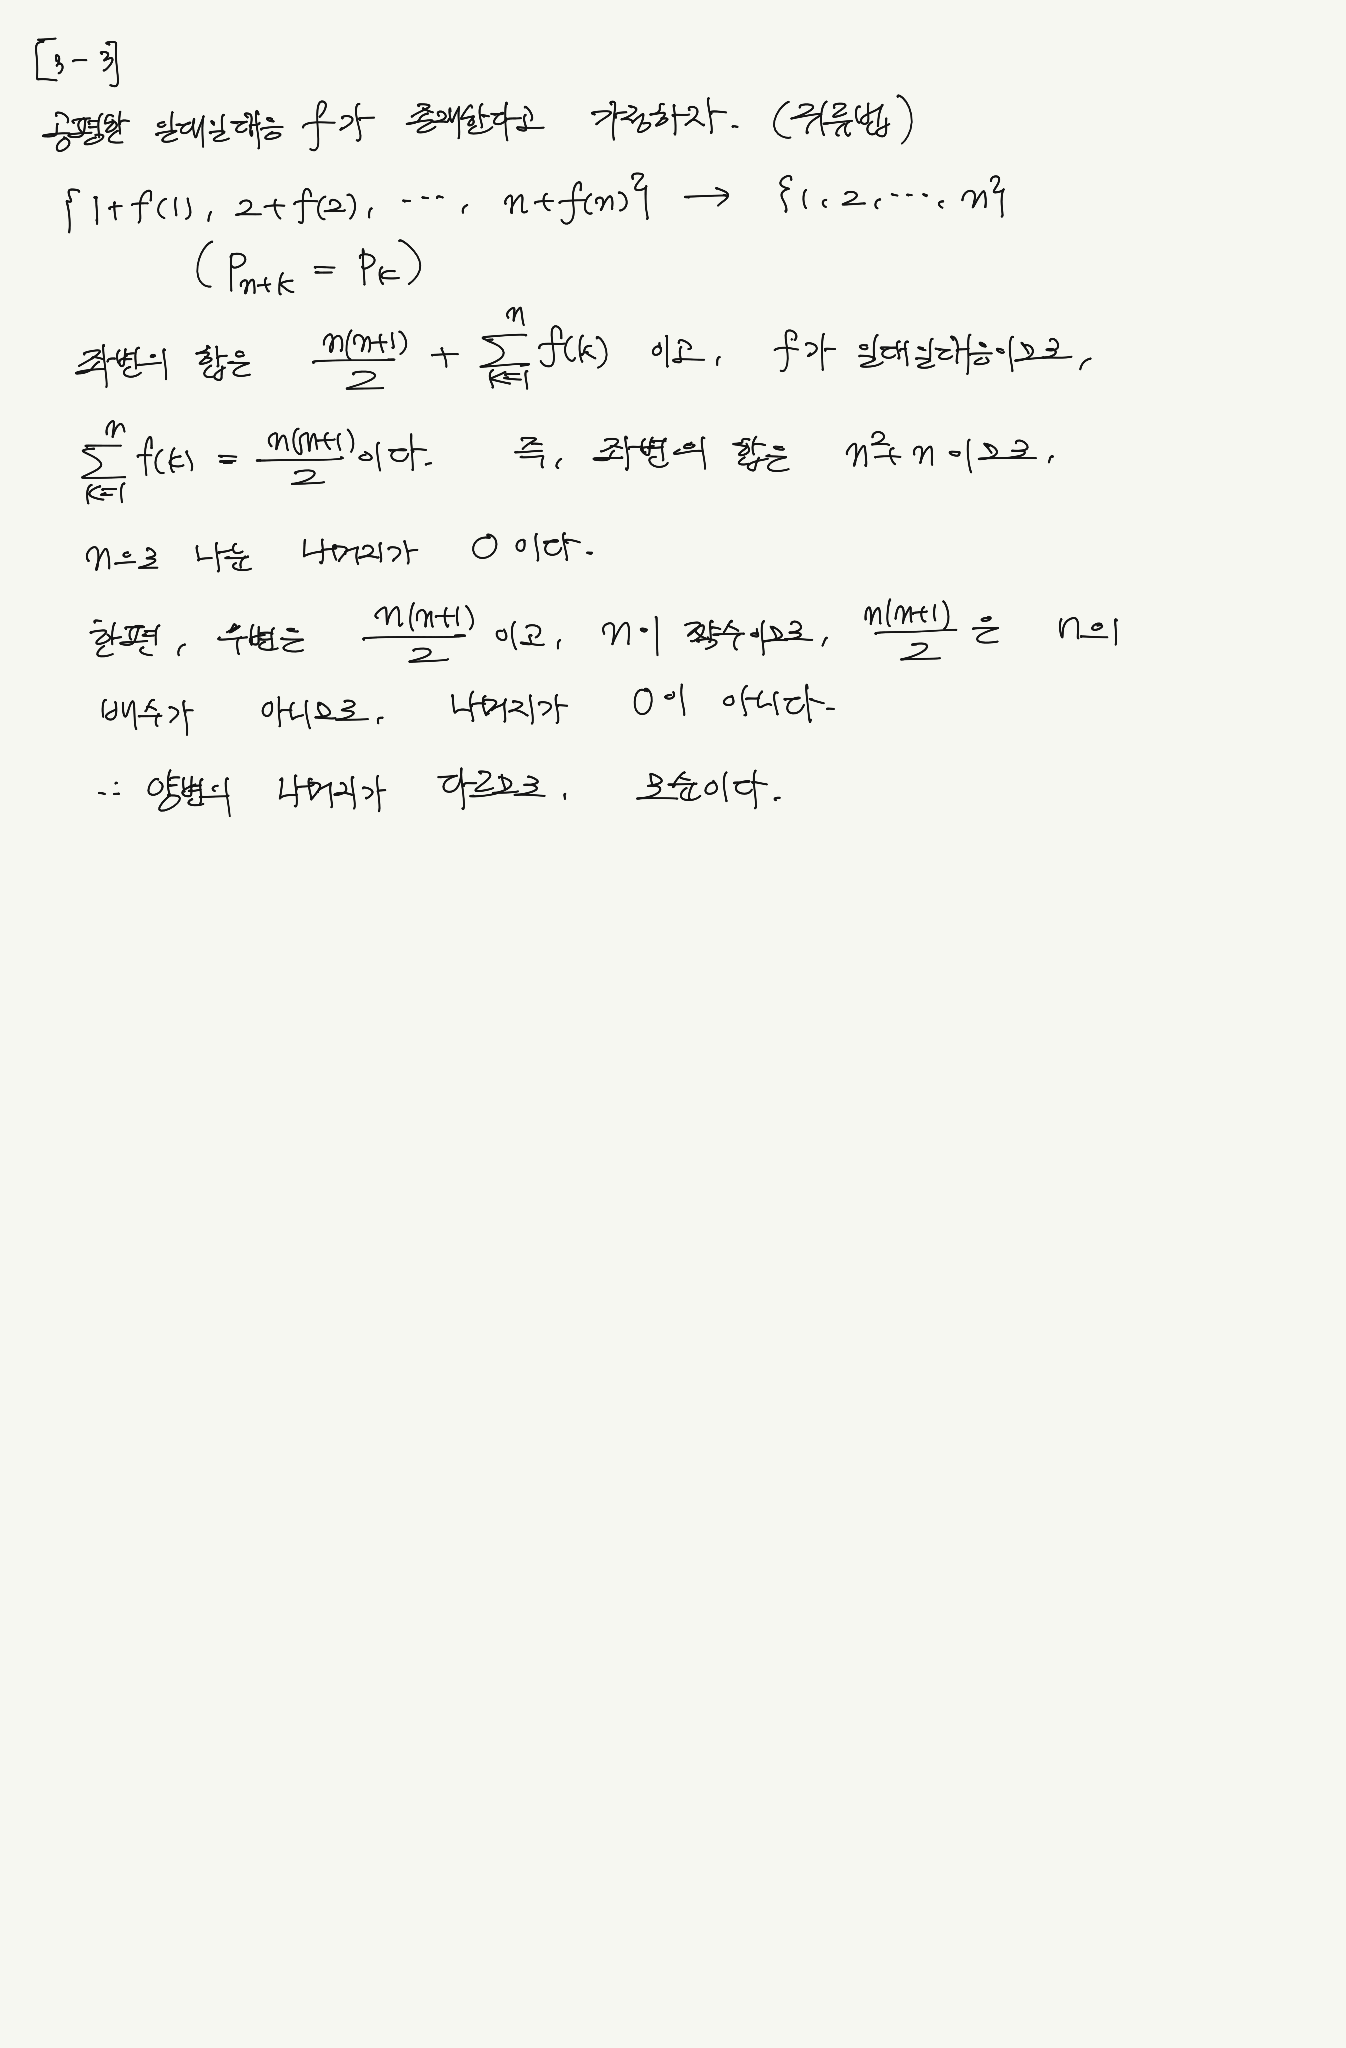 [3-3]
공평한 일대일대응 f가 존재한다고 가정하자. (귀류법)
{1+f(1), 2+f(2), ⋯, n+f(n)} → {1, 2, ⋯, n}
(P_{n+k} = P_k)
좌변의 합은 \frac{n(n+1)}{2} + \sum_{k=1}^{n} f(k) 이고, f가 일대일대응이므로,
\sum_{k=1}^{n} f(k) = \frac{n(n+1)}{2} 이다. 즉, 좌변의 합은 n²+n 이므로,
n으로 나눈 나머지가 0 이다.
한편, 우변은 \frac{n(n+1)}{2} 이고, n이 짝수이므로, \frac{n(n+1)}{2} 은 n의
배수가 아니므로, 나머지가 0이 아니다.
∴ 양변의 나머지가 다르므로, 모순이다.